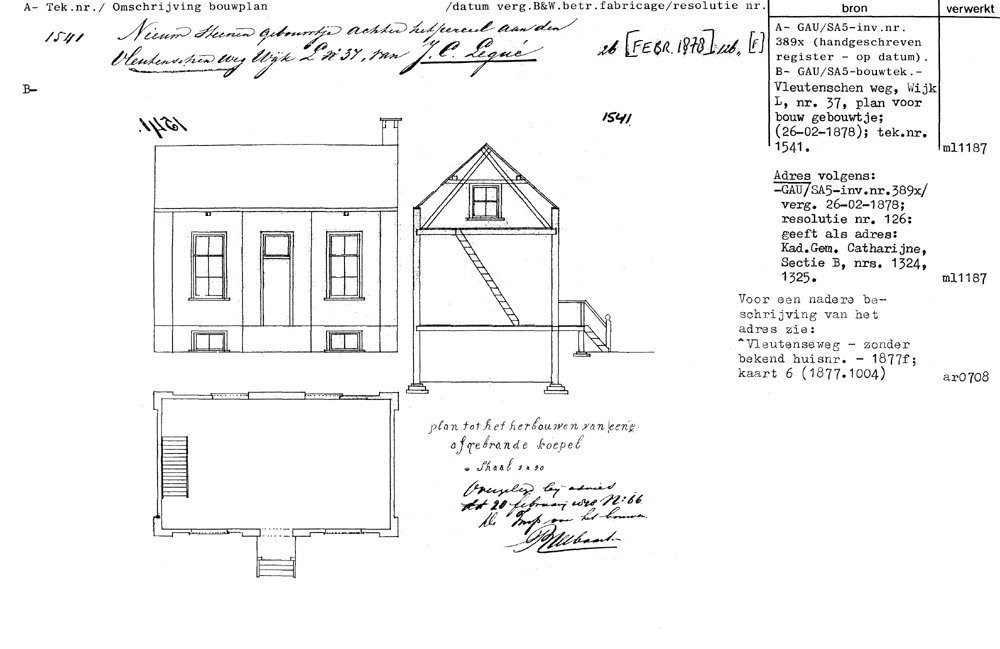 A- Tek.nr./ Omschrijving bouwplan /datum verg.B&W.betr.fabricage/resolutie nr. bron verwerkt
1541 Nieuw steenen gebouwtje achter het perceel aan den
Vleutenschen weg Wijk L No 37, van J. C. Pequé 26 [FEBR. 1878]. 126. [F]
B-
A- GAU/SA5-inv.nr.
389x (handgeschreven
register - op datum).
B- GAU/SA5-bouwtek.-
Vleutenschen weg, Wijk
L, nr. 37, plan voor
bouw gebouwtje;
(26-02-1878); tek.nr.
1541. ml1187
Adres volgens:
-GAU/SA5-inv.nr.389x/
verg. 26-02-1878;
resolutie nr. 126:
geeft als adres:
Kad.Gem. Catharijne,
Sectie B, nrs. 1324,
1325. ml1187
Voor een nadere be-
schrijving van het
adres zie:
^Vleutenseweg - zonder
bekend huisnr. - 1877f;
kaart 6 (1877.1004) ar0708
1541
1541
plan tot het herbouwen van eene
afgebrande koepel
Schaal
Overgelegd bij advies
dd 20 february No 66
De Insp van het bouwen